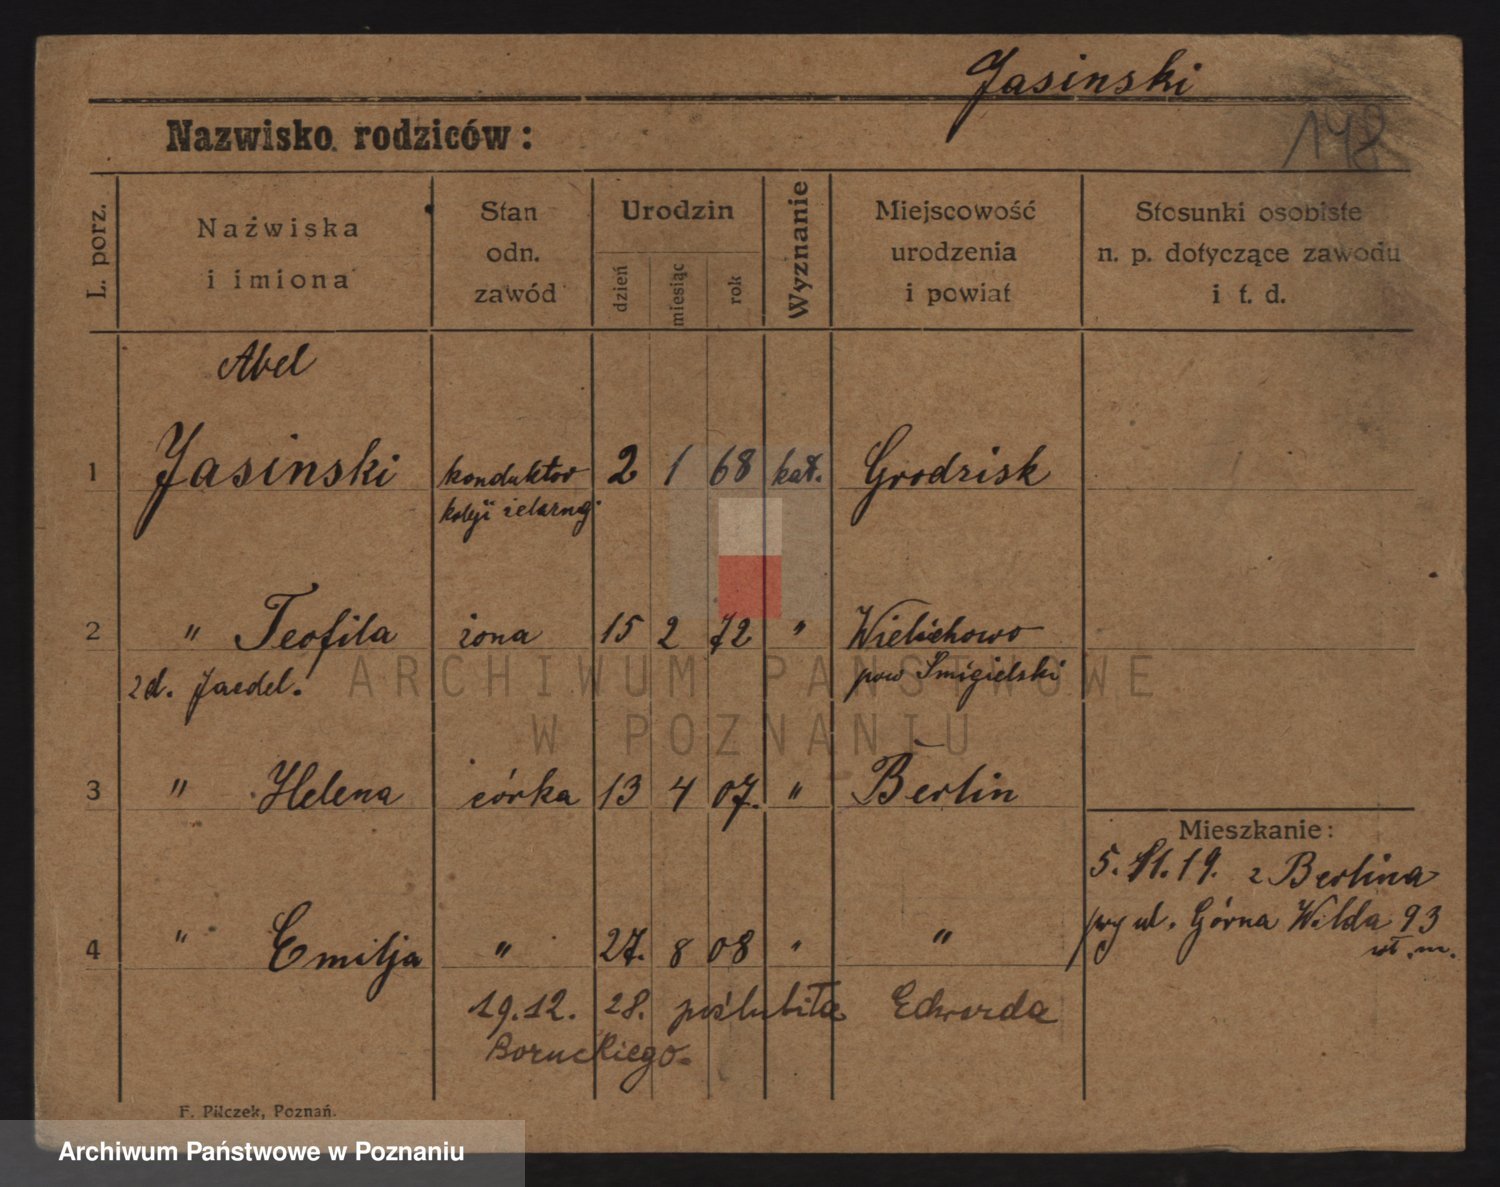 Jasinski
148
Nazwisko rodziców:
L. porz.
Nazwiska
i imiona
Stan
odn.
zawód
Urodzin
dzień
miesiąc
rok
Wyznanie
Miejscowość
urodzenia
i powiat
Stosunki osobiste
n. p. dotyczące zawodu
i t. d.
Abel
1 Jasinski konduktor 2 1 68 kat. Grodzisk
koleji żelaznej
2 " Teofila żona 15 2 72 " Wielichowo
zd. Jaedel. pow Śmigielski
ARCHIWUM PAŃSTWOWE
W POZNANIU
3 " Helena córka 13 4 07. " Berlin
Mieszkanie:
5. 11. 19. z Berlina
przy ul. Górna Wilda 93
wł. m.
4 " Emilja " 27. 8 08 " "
19.12. 28. poślubiła Edwarda
Boruckiego.
F. Pilczek, Poznań.
Archiwum Państwowe w Poznaniu